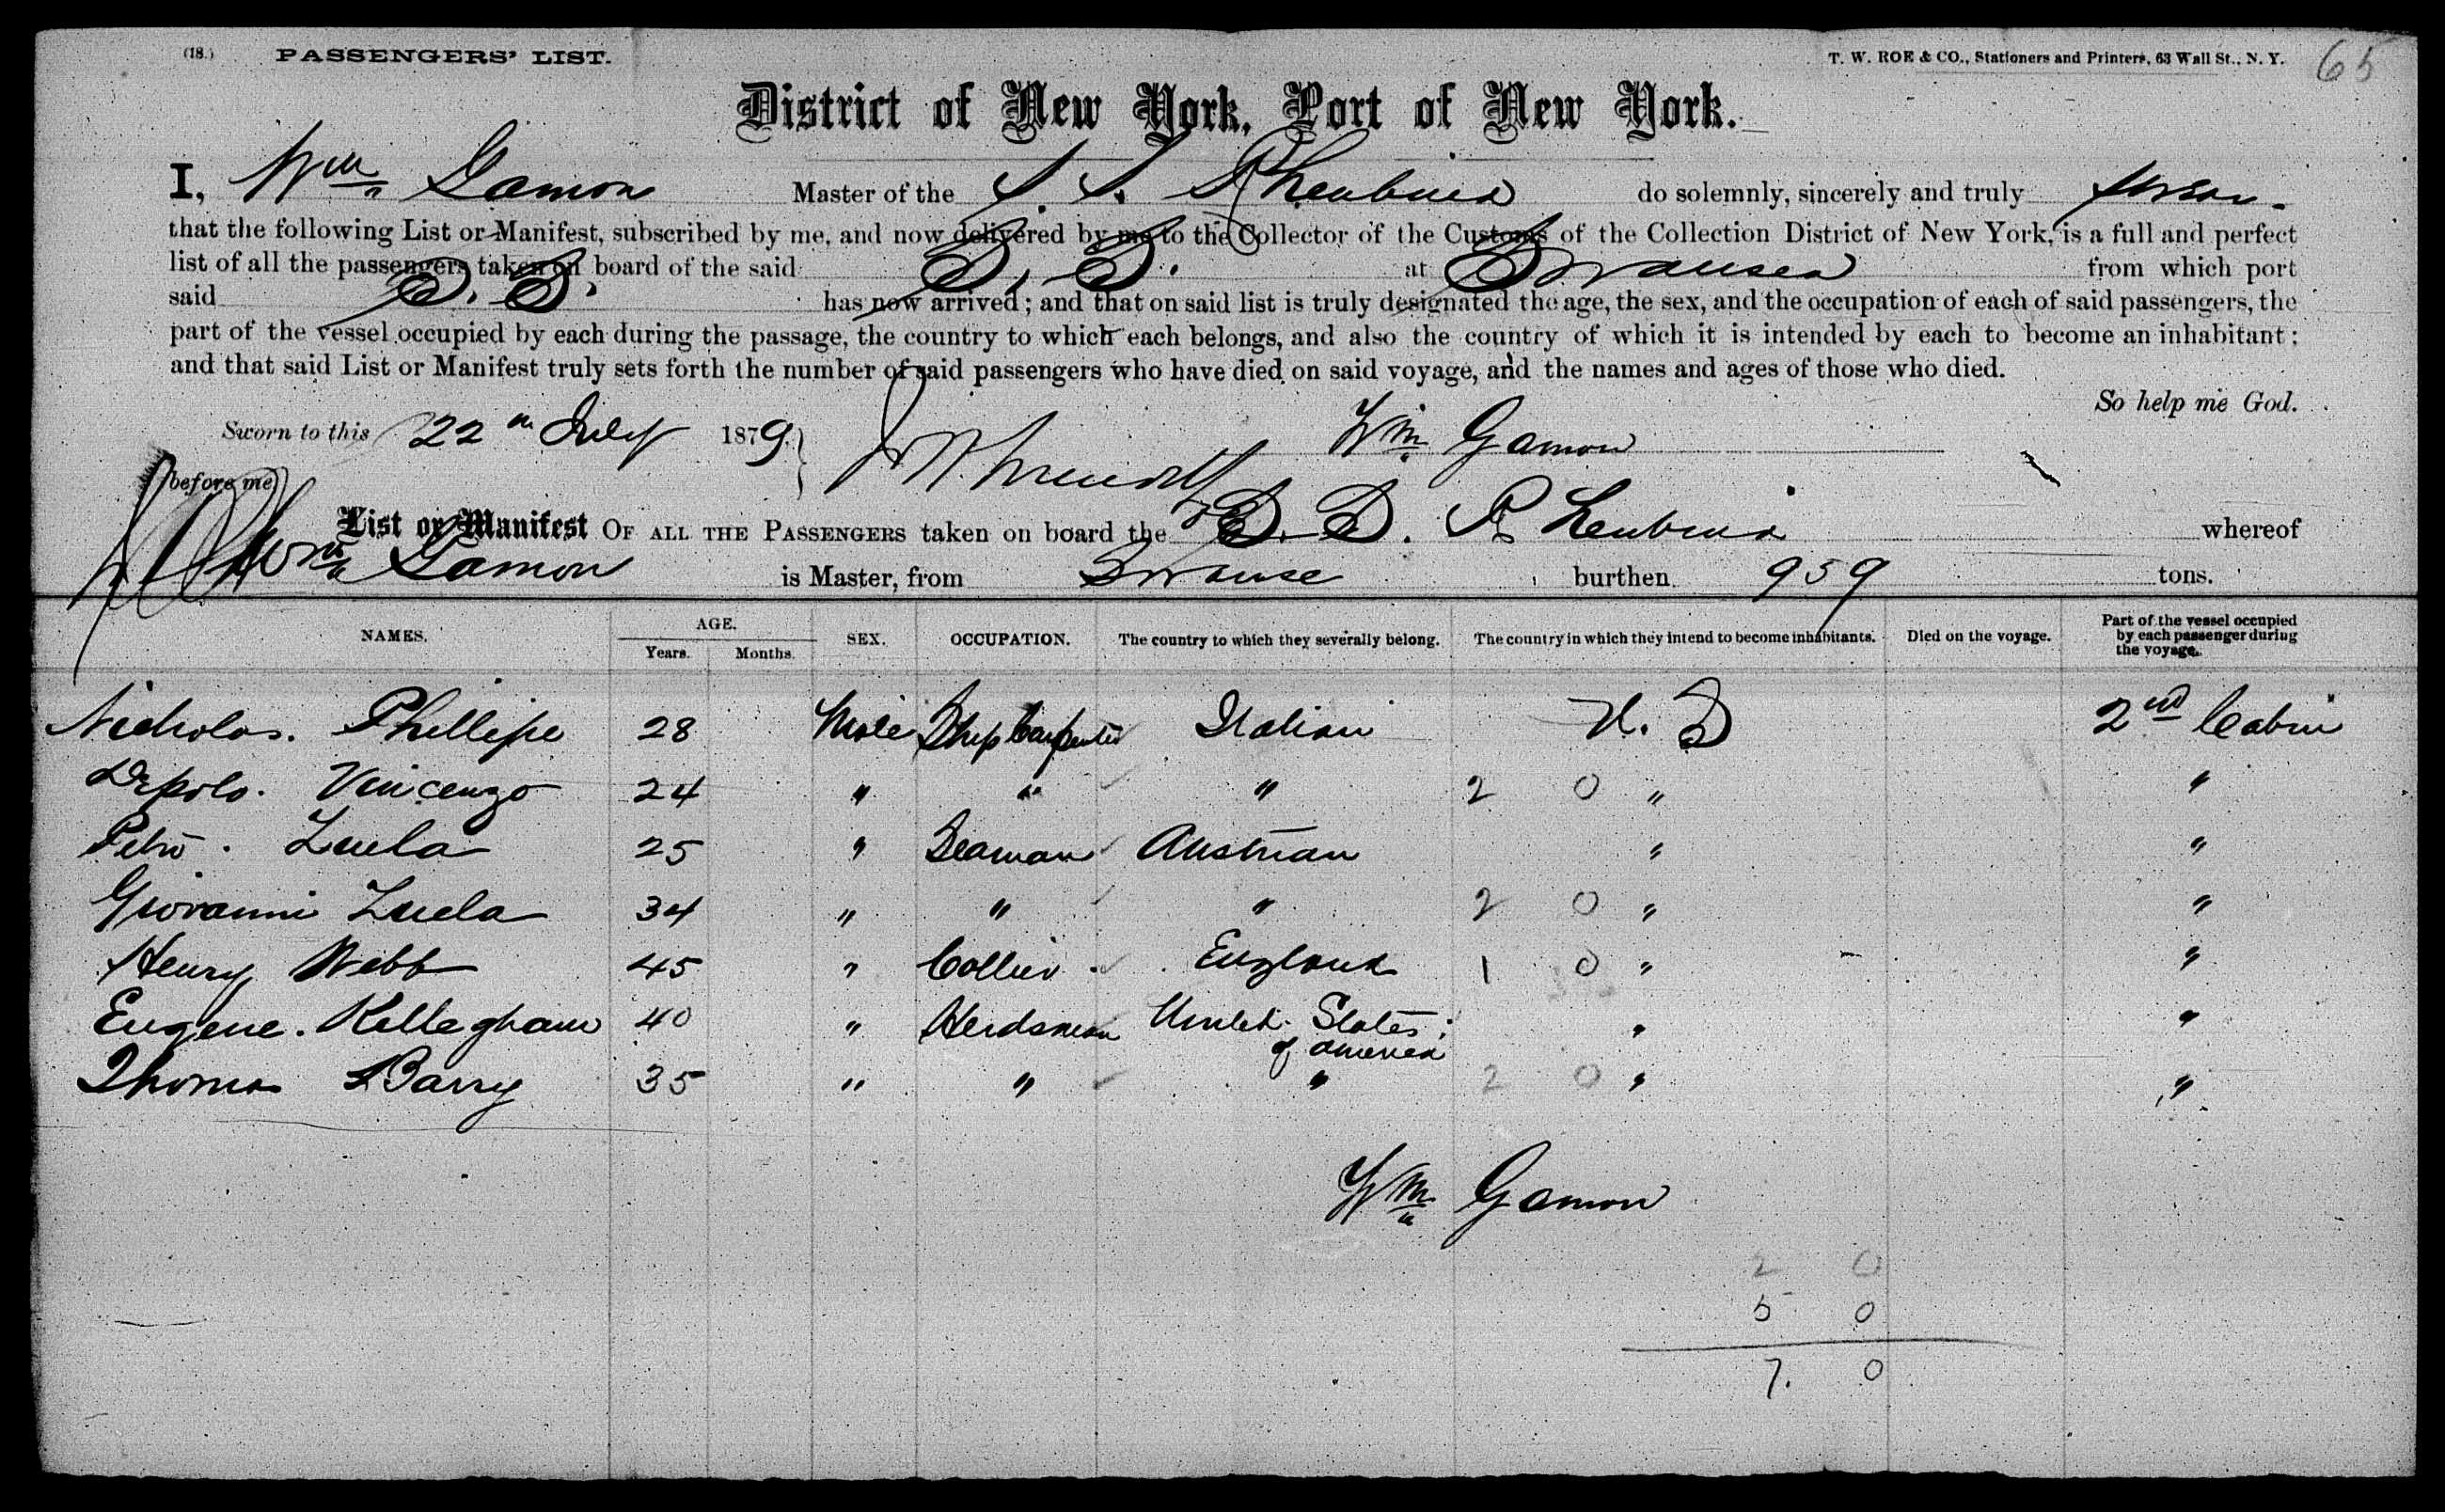 (18.) PASSENGERS' LIST. T. W. ROE & CO., Stationers and Printers, 63 Wall St., N. Y. 65
District of New York, Port of New York.
I, Wm Gamon Master of the S. S. Rheubina do solemnly, sincerely and truly swear
that the following List or Manifest, subscribed by me, and now delivered by me to the Collector of the Customs of the Collection District of New York, is a full and perfect
list of all the passengers taken on board of the said S. S. at Swansea from which port
said S. S. has now arrived; and that on said list is truly designated the age, the sex, and the occupation of each of said passengers, the
part of the vessel occupied by each during the passage, the country to which each belongs, and also the country of which it is intended by each to become an inhabitant;
and that said List or Manifest truly sets forth the number of said passengers who have died on said voyage, and the names and ages of those who died.
So help me God.
Sworn to this 22 July 1879. Wm Gamon
before me
List or Manifest OF ALL THE PASSENGERS taken on board the S. S. Rheubina whereof
Wm Gamon is Master, from Swanse burthen 959 tons.
NAMES. AGE. Years. Months. SEX. OCCUPATION. The country to which they severally belong. The country in which they intend to become inhabitants. Died on the voyage. Part of the vessel occupied by each passenger during the voyage.
Nicholas. Phellipe 28 Male Ship Carpenter Italian U. S 2nd Cabin
Depolo. Vincenzo 24 " " " 2 0 " "
Petro. Zuela 25 " Seaman Austrian " "
Giovanni Zuela 34 " " " 2 0 " "
Henry Webb 45 " Collier England 1 0 " "
Eugene. Kelleghan 40 " Herdsman United States of America " "
Thomas Barry 35 " " " 2 0 " "
Wm Gamon
2 0
5 0
7. 0